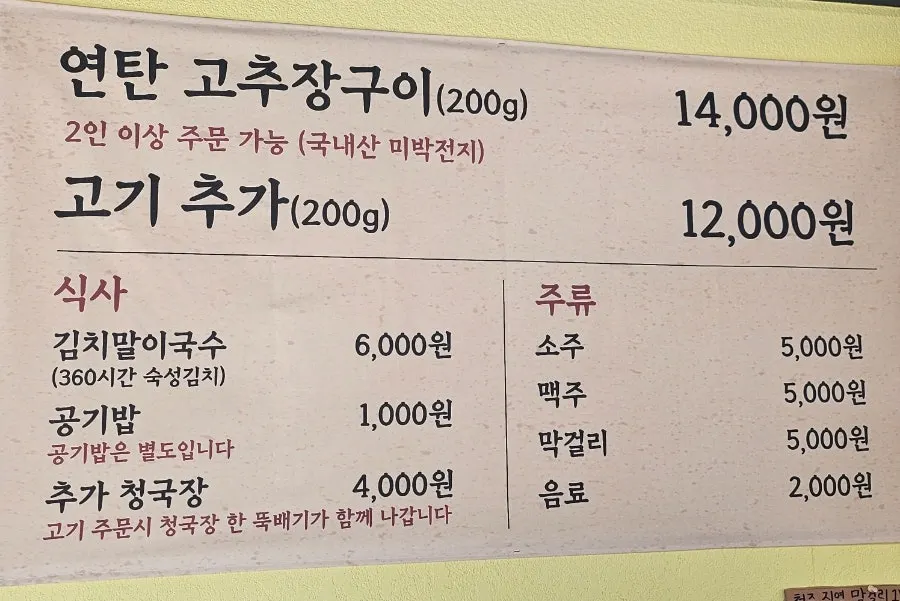 연탄 고추장구이(200g) 14,000원
2인 이상 주문 가능 (국내산 미박전지)
고기 추가(200g) 12,000원
식사
김치말이국수 6,000원
(360시간 숙성김치)
공기밥 1,000원
공기밥은 별도입니다
추가 청국장 4,000원
고기 주문시 청국장 한 뚝배기가 함께 나갑니다
주류
소주 5,000원
맥주 5,000원
막걸리 5,000원
음료 2,000원